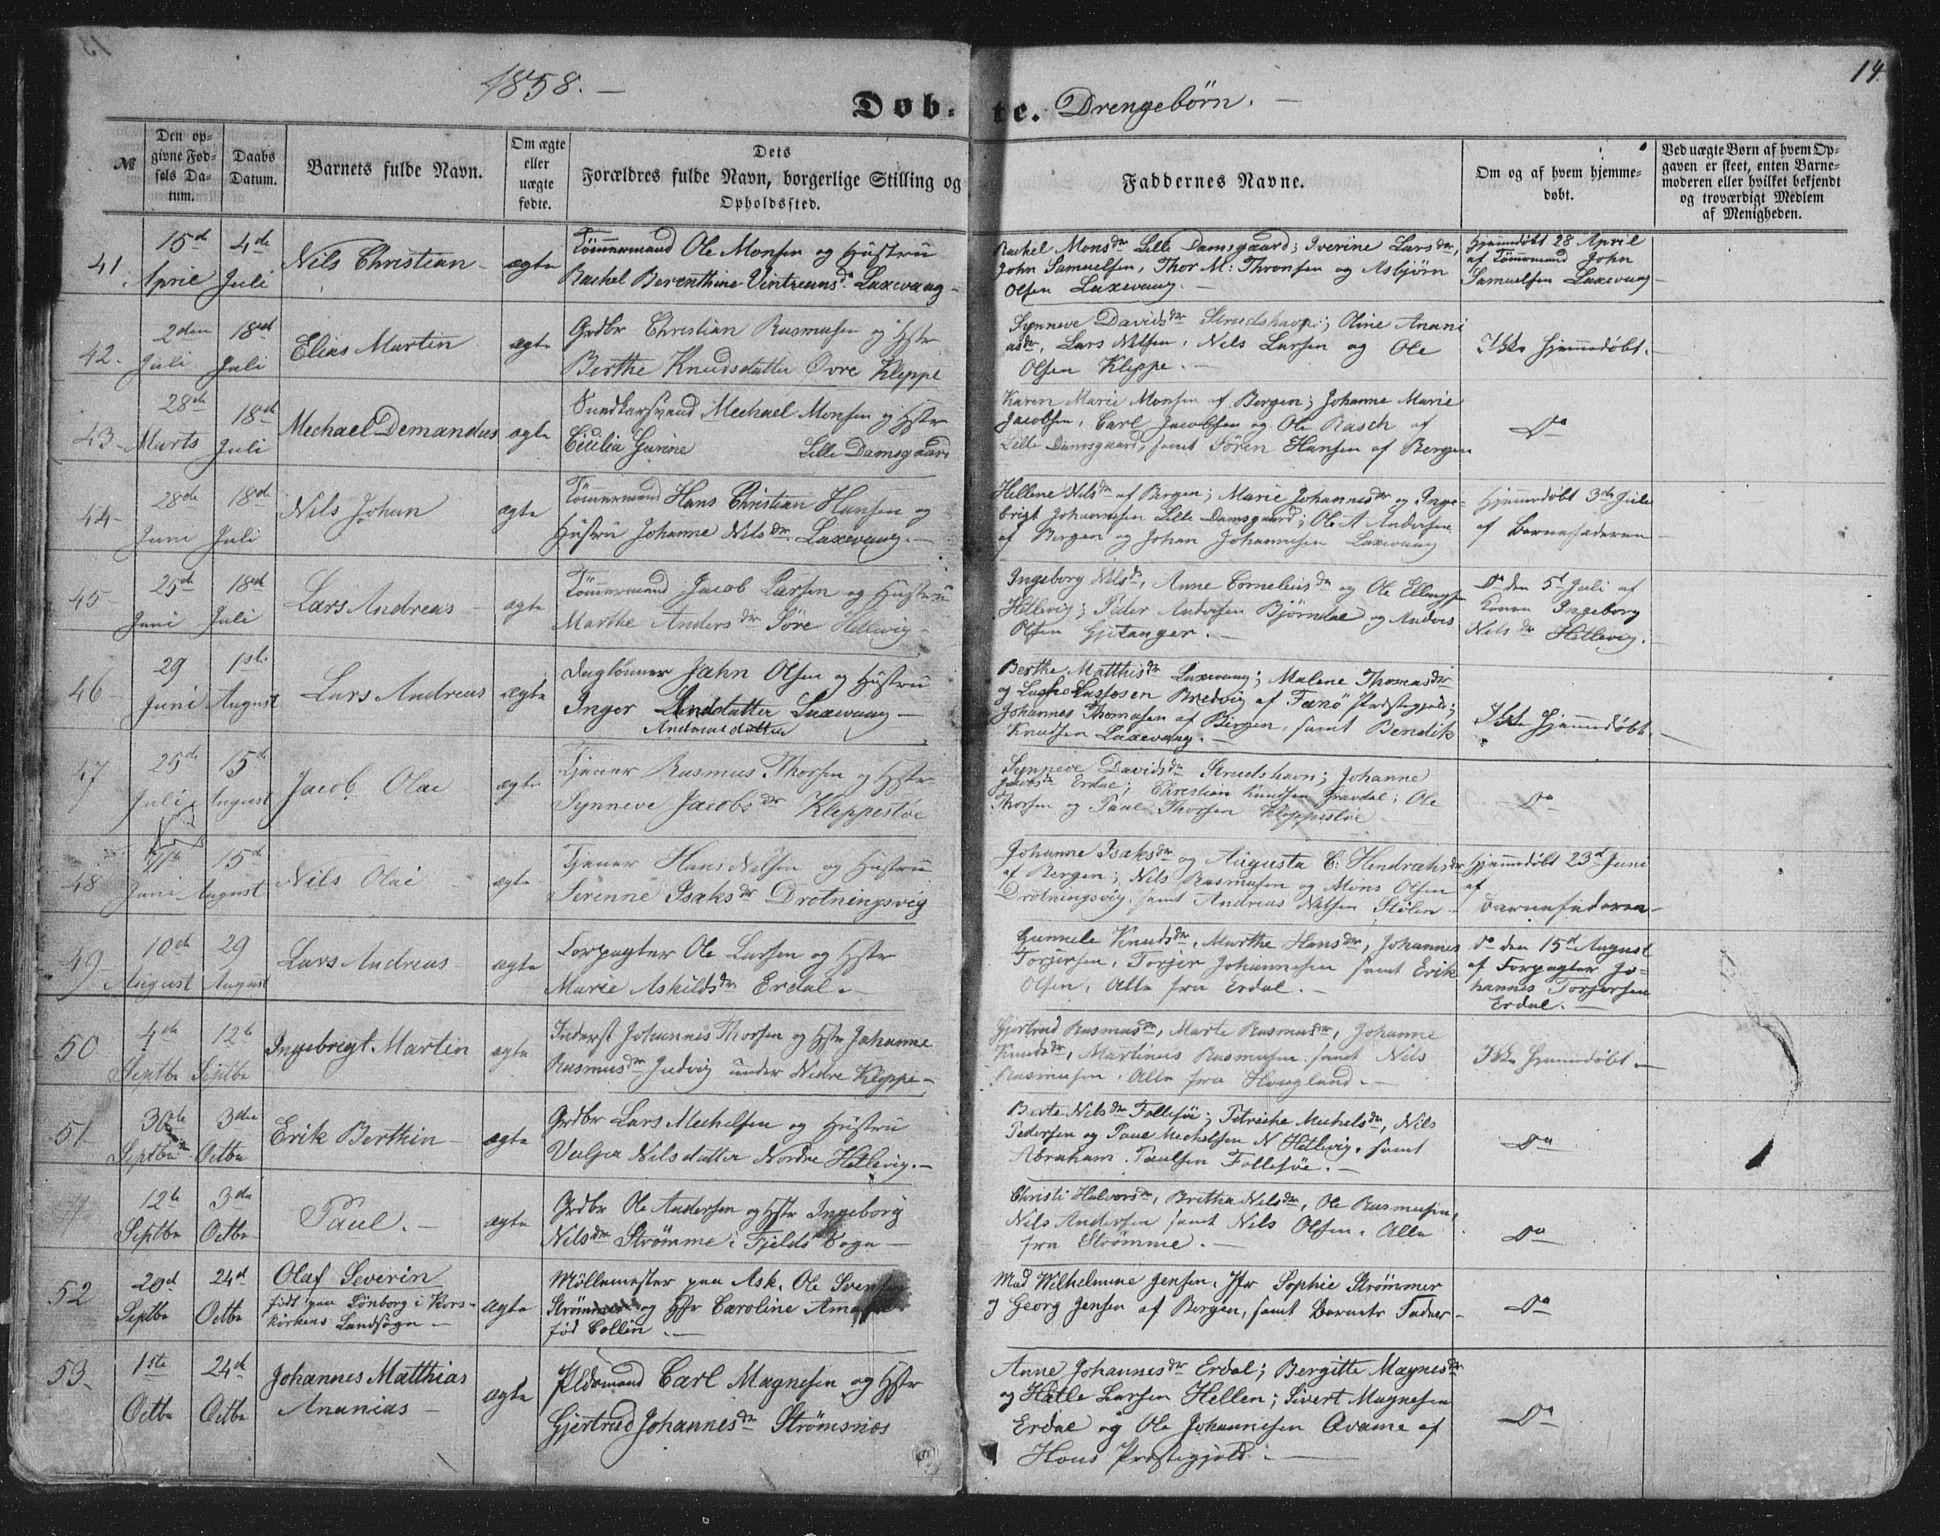 1858.
Døb-te. Drengebørn.
14.
№
Den op-
givne Fød-
sels Da-
tum.
Daabs
Datum.
Barnets fulde Navn.
Om ægte
eller
uægte
fødte.
Dets
Forældres fulde Navn, borgerlige Stilling og
Opholdssted.
Faddernes Navne.
Om og af hvem hjemme-
døbt.
Ved uægte Børn af hvem Op-
gaven er skeet, enten Barne-
moderen eller hvilket bekjendt
og troværdigt Medlem
af Menigheden.
41.
15de
April
4de
Juli
Nils Christian
ægte
Tömmermand Ole Monsen og Hustru
Rachel Berenthine Laxevaag
Rachel Monsdr Lille Damsgaard; Iverine Larsdr,
John Samuelsen, Thor M: Thronsen og Asbjörn
Olsen Laxevaag.
Hjemmedöbt 28 April
af Tömmermand John
Samuelsen Laxevaag
42.
2den
Juli
18de
Juli
Elias Martin
ægte
Grdbr Christian Rasmusen og Hstr
Berthe Knudsdatter Övre Kleppe
Synneve Davidsdr Strudshavn; Oline Anani
asdr, Lars Nilsen, Nils Larsen og Ole
Olsen Kleppe.
Ikke hjemmedöbt.
43.
28de
Marts
18de
Juli
Mechael Demandus
ægte
Mechael Monsen og Hstr
Cicilia Gurine Lille Damsgaard
Karen Marie Monsen af Bergen; Johanne Marie
Jacobsen, Carl Jacobsen og Ole Rasch af
Lille Damsgaard, samt Sören Hansen af Bergen
Do
44
28de
Juni
18de
Juli
Nils Johan
ægte
Tömmermand Hans Christian Hansen og
Hustru Johanne Nilsdr Laxevaag.
Hellene Nilsdr af Bergen; Marie Johannesdr og Inge-
brigt Johannesen Lille Damsgaard; Ole A Andersen
af Bergen og Johan Johannesen Laxevaag
Hjemmedöbt 3de Juli
af Barnefaderen
45
25de
Juni
18de
Juli
Lars Andreas
ægte
Tömmermand Jacob Larsen og Hustru
Marthe Andersdr Söre Hetlevig
Ingeborg Nilsdr, Anne Corneliusdr og Ole Ellingsen
Hetlevig; Peder Andersen Björndal og Anders
Olsen Gjetanger.
Do den 5t Juli af
Konen Ingeborg
Nilsdr Hetlevig.
46
29
Juni
1ste
August
Lars Andreas
ægte
Daglönner Jahn Olsen og Hustru
Inger Laxevaag
Andreasdatter
Berthe Matthisdr Laxevaag; Malene Thomasdr
og Lassesen Bredvig af Fanö Præstegjeld;
Johannes Thomasen af Bergen, samt Bendik
Knudsen Laxevaag.
Ikke hjemmedöbt.
47
25de
Juli
15de
August
Jacob Olai
ægte
Tjener Rasmus Thorsen og Hstr
Synneve Jacobsdr Kleppestöe
Synneve Davidsdr Strudshavn; Johanne
Jacobsdr Erdal; Christian Knudsen Gravdal; Ole
Thorsen og Paul Thorsen Kleppestöe
Do
48
Juni
15d
August
Nils Olai
ægte
Tjener Hans Nilsen og Hustru
Serenne Isaksdr Drotningsvig
Johanne Isaksdr og Augusta C: Hendriksdr
af Bergen; Nils Rasmusen og Mons Olsen
Drotningsvig, samt Andreas Nilsen Stölen
Hjemmedöbt 23d Juni
af
Barnefaderen
49
10de
August
29
August
Lars Andreas
ægte
Forpagter Ole Larsen og Hstr
Marie Askildsdr Erdal.
Gunnele Knudsdr, Marthe Hansdr, Johannes
Torjersen, Torjer Johannesen samt Erik
Olsen, Alle fra Erdal.
Do den 15d August
af Forpagter Jo-
hannes Torjersen
Erdal.
50
4de
Septbr
12te
Septbr
Ingebrigt Martin
ægte
Inderst Johannes Thorsen og Hstr Johanne
Rasmusdr Judvig under Nedre Kleppe
Gjertrud Rasmusdr, Marte Rasmusdr, Johanne
Knudsdr, Martinus Rasmusen, samt Nils
Rasmusen, Alle fra Hougland.
Ikke hjemmedöbt
51
30te
Septbr
3die
Octbr
Erik Berthin
ægte
Grdbr Lars Mechelsen og Hustru
Nilsdatter Nordre Hetlevig.
Berte Nilsdr Follesöe; Petriche Michelsdr, Nils
Pedersen og Paul Mechelsen N Hetlevig, samt
Abraham Paulsen Follesöe.
Do
12te
Septbr
3die
Octbr
Paul.
ægte
Grdbr Ole Andersen og Hstr Ingeborg
Nilsdr Strömme i Fjelds Sogn
Christi Halvorsdr, Britha Nilsdr, Ole Rasmusen,
Nils Andersen samt Nils Olsen, Alle
fra Strömme.
Do
52
20d
Septbr
24d
Octbr
Olaf Severin
født paa Lönborg i Kors-
kirkens Landsogn
ægte
Möllemester paa Ask, Ole Svensen
og Hstr Caroline
föd Collin.
Mad Wilhelmine Jensen, Jfr Sophie Strömmer
og Georg Jensen af Bergen, samt Barnets Fader
Do
53
1ste
Octbr
24d
Octbr
Johannes Matthias
Ananias
ægte
Carl Magnesen og Hstr
Gjertrud Johannesdr Strömsnes
Anne Johannesdr Erdal; Bergitte Magnesdr
og Hatle Larsen Hellen; Sivert Magnesen
Erdal og Ole Johannesen Qvame af
Hous Præstegjeld.
Do